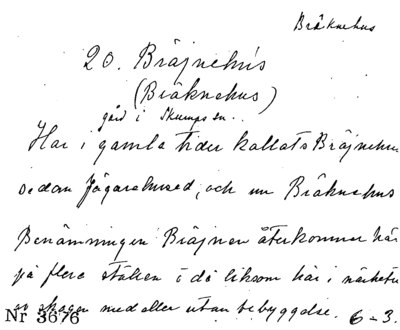 Bräknehus
20. Bräjnehus
(Bräknehus)
gård i Skumpsen..
Har i gamla tider kallats Bräjnehus
sedan Jägarehused, och nu Bräknehus
Benämningen Bräjnen återkommer här
på flera ställen i då liksom här i närheten
skogen med eller utan bebyggelse. 6-3.
Nr 3676